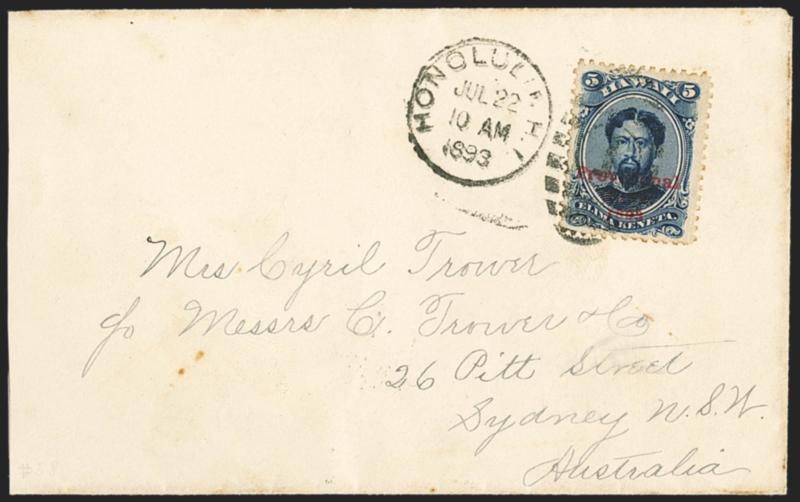 HONOLULU H.I.
JUL 22
10 AM
1893
5 HAWAII 5
Provisional
ELIMA KENETA
Mrs Cyril Trower
c/o Messrs C. Trower & Co
26 Pitt Street
Sydney N.S.W.
Australia
#58